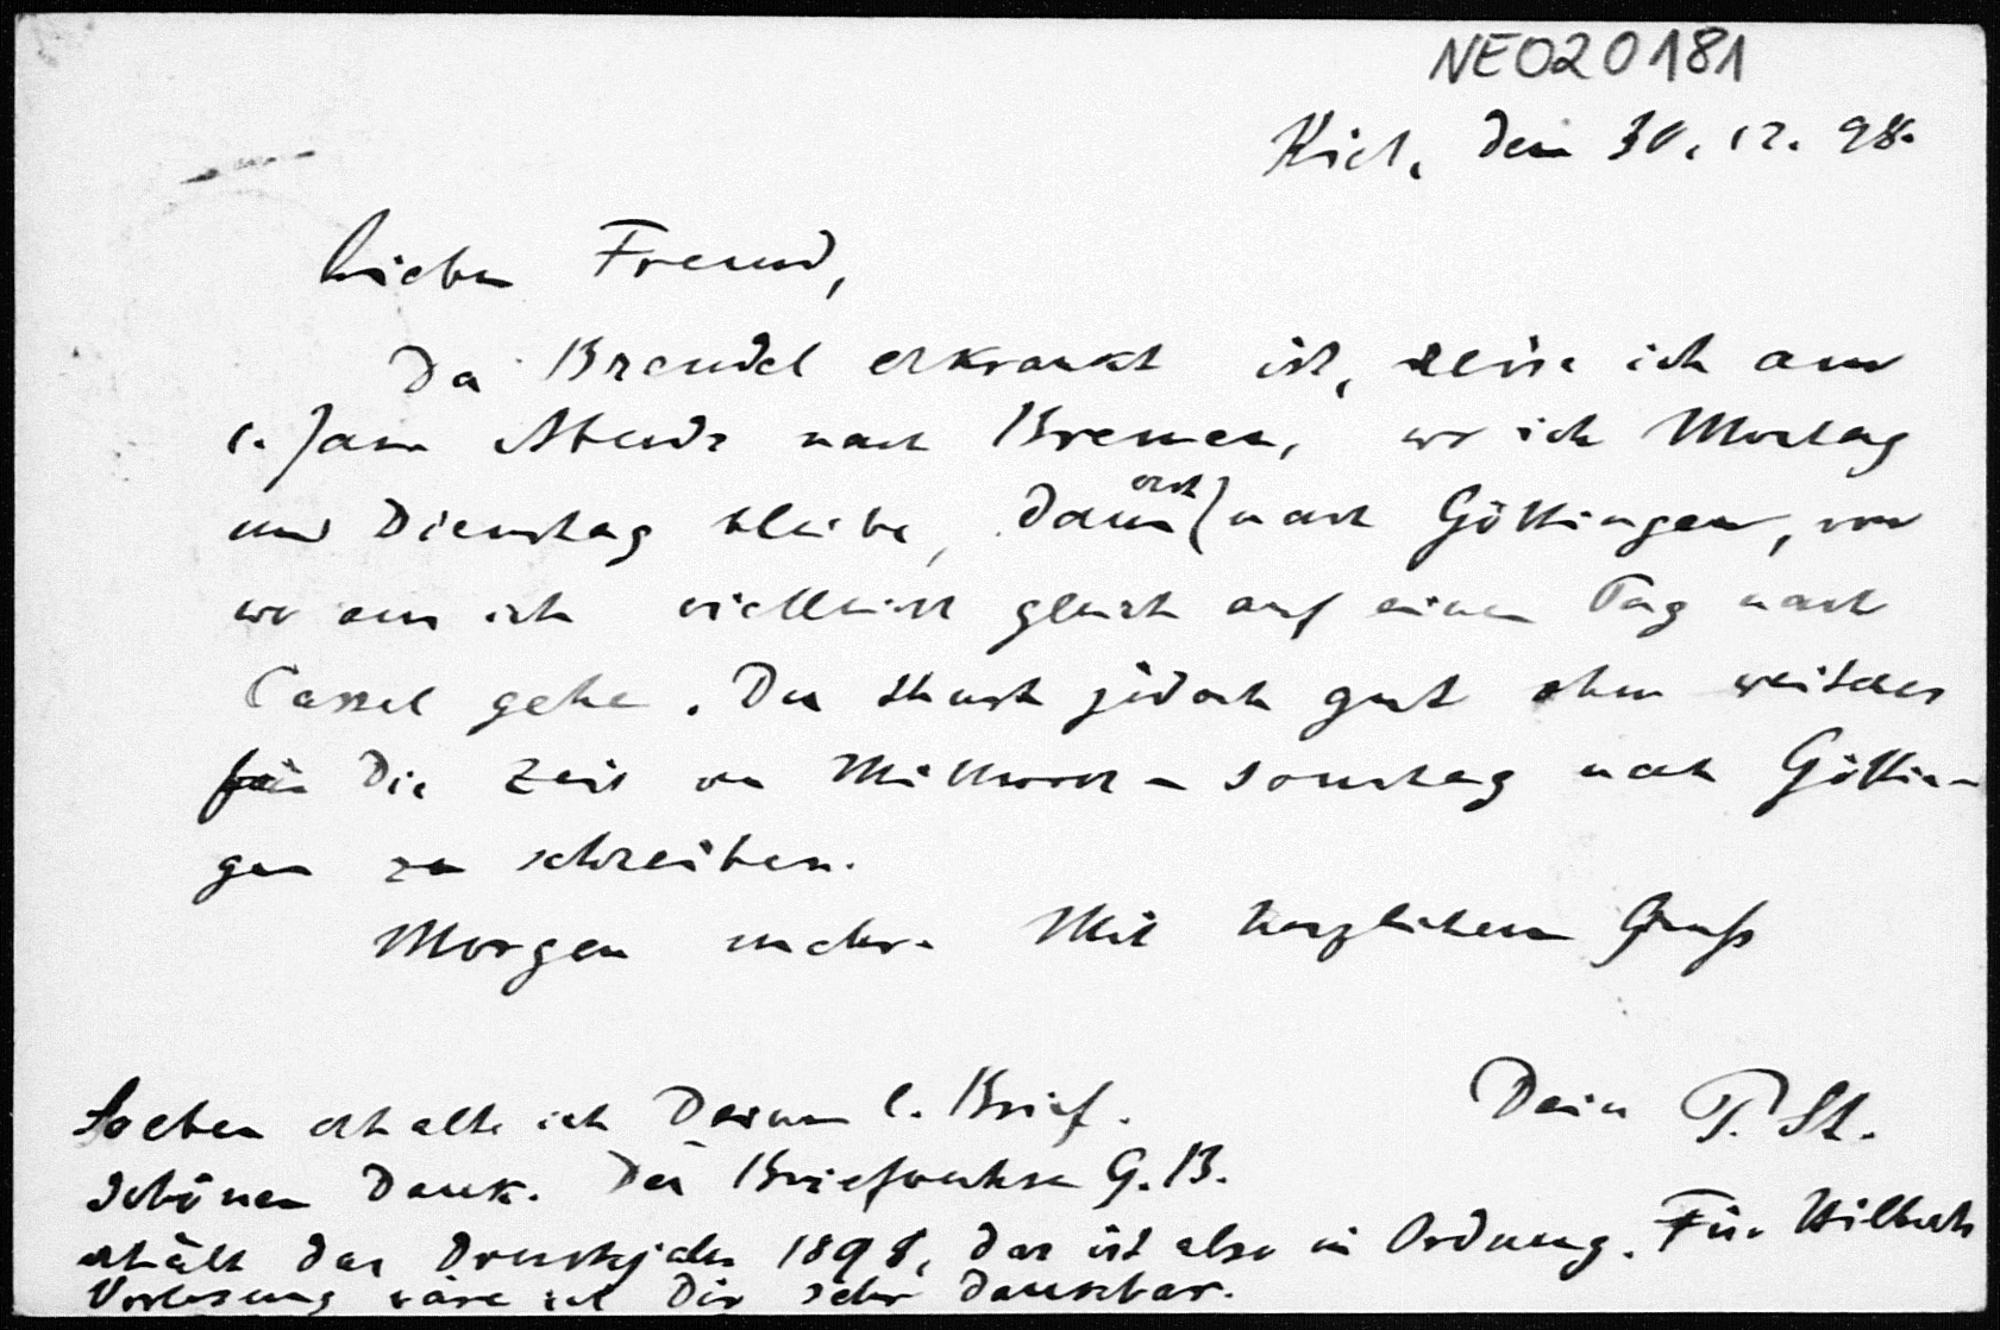 NE020181
Kiel, den 30. 12. 98.
Lieber Freund,
Da Brendel erkrankt ist, reise ich am
1. Jan. Abends nach Bremen, wo ich Montag
und Dienstag bleibe, dann erst nach Göttingen, von
wo aus ich vielleicht gleich auf einen Tag nach
Cassel gehe. Du thust jedoch gut ohne weiteres
für die Zeit von Mittwoch – Sonntag nach Göttin-
gen zu schreiben.
Morgen mehr. Mit herzlichem Gruß
Dein P. St.
Soeben erhalte ich Deinen l. Brief.
Schönen Dank. Der Briefwechsel G. B.
erhält das Druckjahr 1898, das ist also in Ordnung. Für Hilberts
Vorlesung wäre ich Dir sehr dankbar.